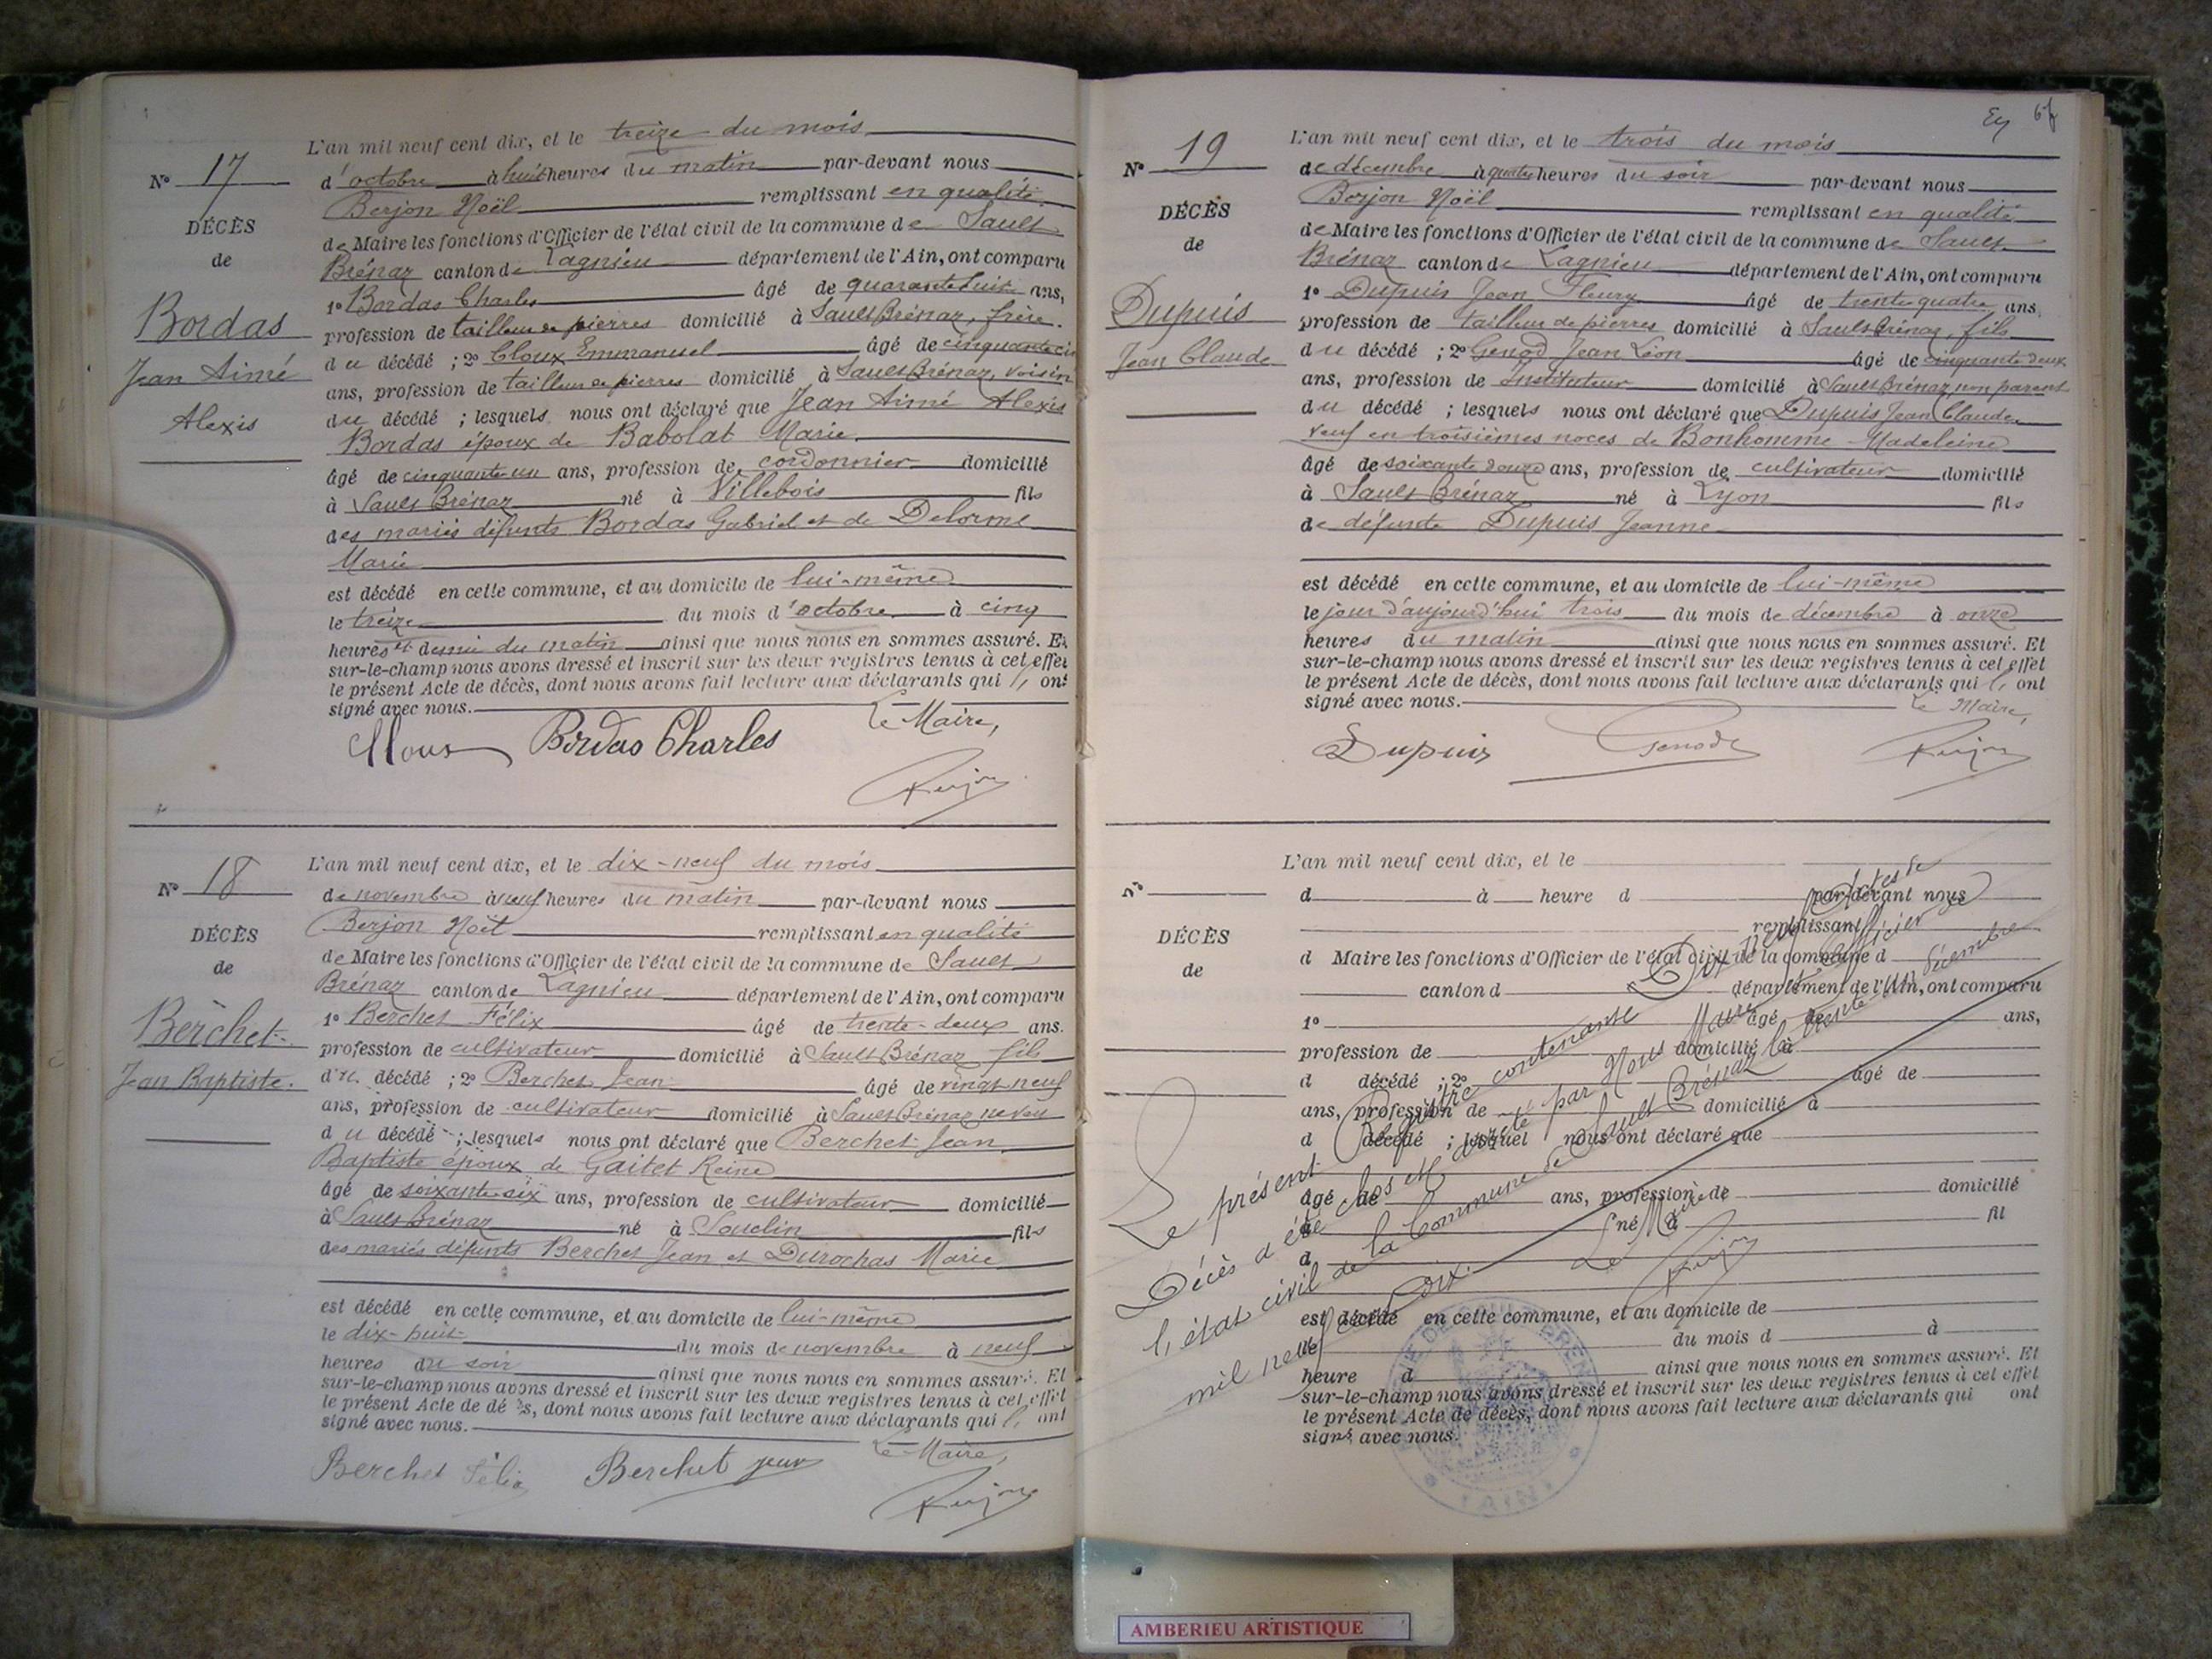 N° 17
DÉCÈS
de
Bordas
Jean Aimé
Alexis
L'an mil neuf cent dix, et le treize du mois
d'octobre à huit heures du matin par-devant nous
Berjon Noël remplissant en qualité
de Maire les fonctions d'Officier de l'état civil de la commune de Sault
Brénaz canton de Lagnieu département de l'Ain, ont comparu
1° Bordas Charles âgé de quarante huit ans,
profession de tailleur de pierres domicilié à Sault Brénaz, frère
du décédé ; 2° Cloux Emmanuel âgé de cinquante
ans, profession de tailleur de pierres domicilié à Sault Brénaz, voisin
du décédé ; lesquels nous ont déclaré que Jean Aimé Alexis
Bordas époux de Babolat Marie
âgé de cinquante un ans, profession de cordonnier domicilié
à Sault Brénaz né à Villebois fils
des mariés défunts Bordas Gabriel et de Delorme
Marie
est décédé en cette commune, et au domicile de lui-même
le treize du mois d'octobre à cinq
heures et demie du matin ainsi que nous nous en sommes assuré. Et
sur-le-champ nous avons dressé et inscrit sur les deux registres tenus à cet effet
le présent Acte de décès, dont nous avons fait lecture aux déclarants qui ont
signé avec nous.
Le Maire,
Cloux Bordas Charles
Berjon
N° 18
DÉCÈS
de
Berchet
Jean Baptiste.
L'an mil neuf cent dix, et le dix-neuf du mois
de novembre à neuf heures du matin par-devant nous
Berjon Noël remplissant en qualité
de Maire les fonctions d'Officier de l'état civil de la commune de Sault
Brénaz canton de Lagnieu département de l'Ain, ont comparu
1° Berchet Félix âgé de trente-deux ans.
profession de cultivateur domicilié à Sault Brénaz fils
du décédé ; 2° Berchet Jean âgé de vingt neuf
ans, profession de cultivateur domicilié à Sault Brénaz neveu
du décédé ; lesquels nous ont déclaré que Berchet Jean
Baptiste époux de Gaitet Reine
âgé de soixante six ans, profession de cultivateur domicilié
à Sault Brénaz né à Souclin fils
des mariés défunts Berchet Jean et Durochas Marie
est décédé en cette commune, et au domicile de lui-même
le dix-huit du mois de novembre à neuf
heures du soir ainsi que nous nous en sommes assuré. Et
sur-le-champ nous avons dressé et inscrit sur les deux registres tenus à cet effet
le présent Acte de décès, dont nous avons fait lecture aux déclarants qui ont
signé avec nous.
Le Maire,
Berchet Félix Berchet jean
Berjon
N° 19
DÉCÈS
de
Dupuis
Jean Claude
L'an mil neuf cent dix, et le trois du mois
de décembre à quatre heures du soir par-devant nous
Berjon Noël remplissant en qualité
de Maire les fonctions d'Officier de l'état civil de la commune de Sault
Brénaz canton de Lagnieu département de l'Ain, ont comparu
1° Dupuis Jean Fleury âgé de trente quatre ans,
profession de tailleur de pierres domicilié à Sault Brénaz, fils
du décédé ; 2° Genod Jean Léon âgé de cinquante deux
ans, profession de Instituteur domicilié à Sault Brénaz, non parent
du décédé ; lesquels nous ont déclaré que Dupuis Jean Claude
veuf en troisièmes noces de Bonhomme Madeleine
âgé de soixante douze ans, profession de cultivateur domicilié
à Sault Brénaz né à Lyon fils
de défunte Dupuis Jeanne
est décédé en cette commune, et au domicile de lui-même
le jour d'aujourd'hui trois du mois de décembre à onze
heures du matin ainsi que nous nous en sommes assuré. Et
sur-le-champ nous avons dressé et inscrit sur les deux registres tenus à cet effet
le présent Acte de décès, dont nous avons fait lecture aux déclarants qui ont
signé avec nous.
Le Maire,
Dupuis Genod Berjon
N°
DÉCÈS
de
L'an mil neuf cent dix, et le
d à heure d par-devant nous
remplissant
d Maire les fonctions d'Officier de l'état civil de la commune d
canton d département de l'Ain, ont comparu
1° âgé de ans,
profession de domicilié à
d décédé ; 2° âgé de
ans, profession de domicilié à
d décédé ; lesquel nous ont déclaré que
âgé de ans, profession de domicilié
à né à fil
d
est décédé en cette commune, et au domicile de
le du mois d à
heure d ainsi que nous nous en sommes assuré. Et
sur-le-champ nous avons dressé et inscrit sur les deux registres tenus à cet effet
le présent Acte de décès, dont nous avons fait lecture aux déclarants qui ont
signé avec nous.
Le présent Registre contenant Dix neuf Actes de
Décès a été clos et arrêté par Nous Maire et Officier de
l'état civil de la Commune de Sault Brénaz le trente un Décembre
mil neuf cent dix.
Le Maire
Berjon
AMBERIEU ARTISTIQUE